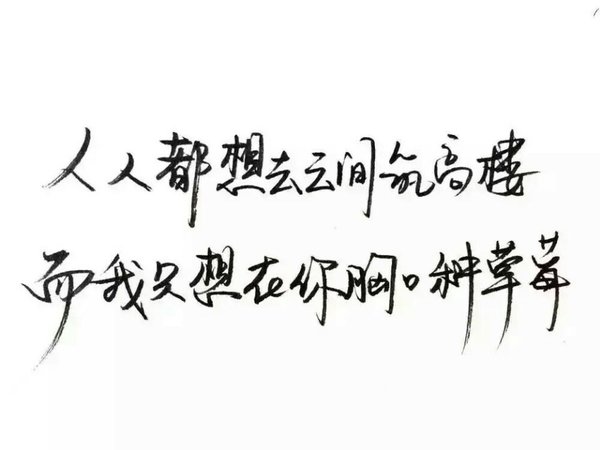 人人都想去云间筑高楼
而我只想在你胸口种草莓